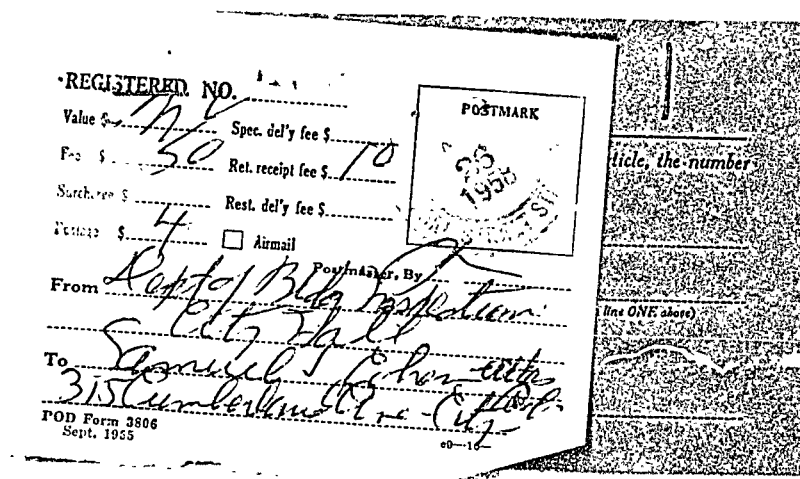 REGISTERED NO.
POSTMARK
Value $ Spec. del'y fee $
Fee $ 50 Ret. receipt fee $ 10
Surcharge $ Rest. del'y fee $
Postage $ 4 Airmail
Postmaster, By
From Dept of Bldg Inspection
City Hall
To Samuel
315 Cumberland Ave - City
POD Form 3806
Sept. 1955
ticle, the number
line ONE above)